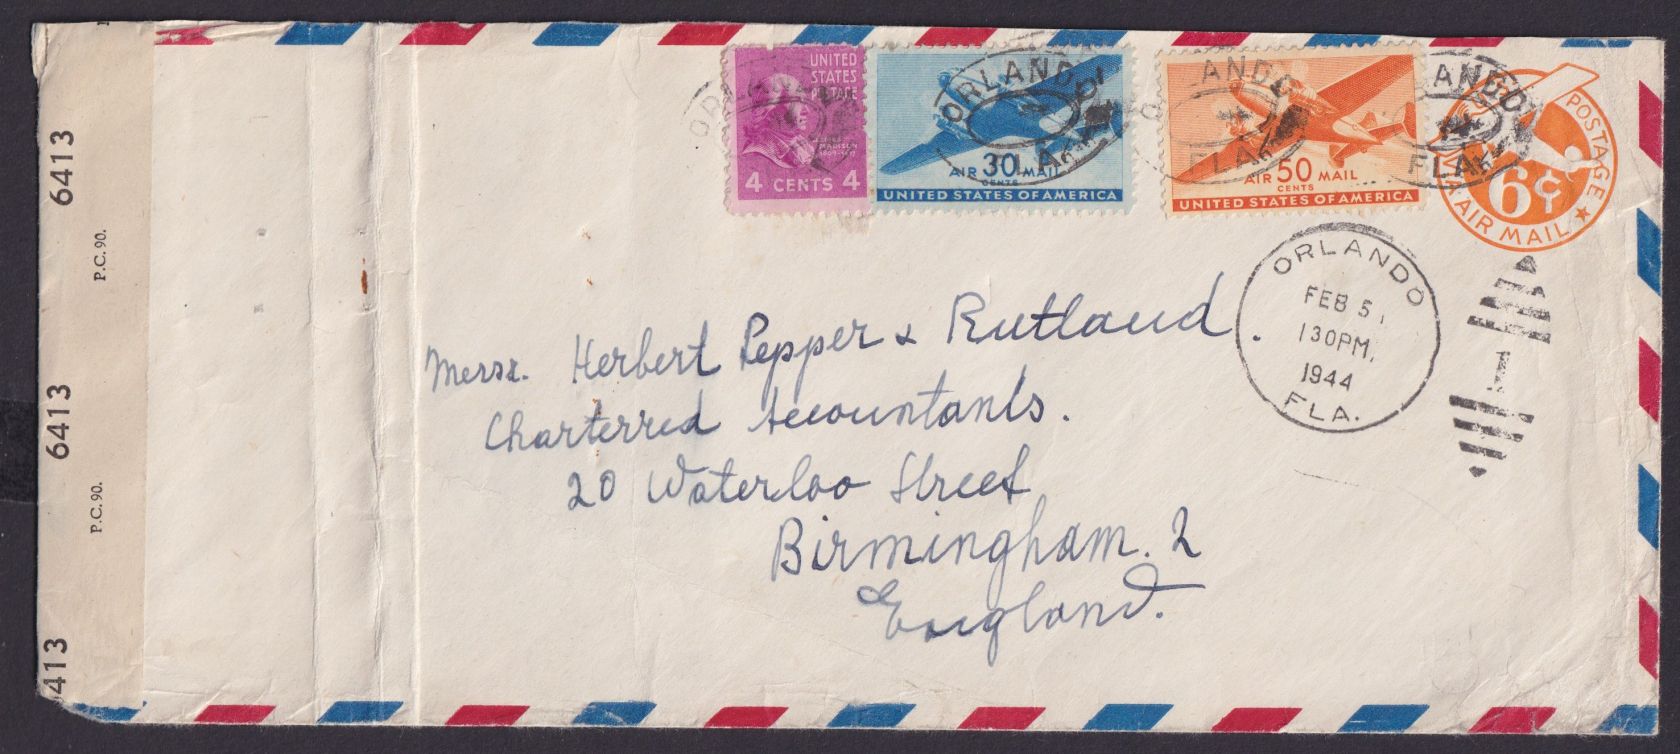 6413
P.C. 90.
6413
P.C. 90.
413
UNITED
STATES
POSTAGE
MADISON
4 CENTS 4
ORLANDO
FLA.
AIR 30 MAIL
CENTS
UNITED STATES OF AMERICA
ANDO
FLA.
AIR 50 MAIL
CENTS
UNITED STATES OF AMERICA
ANDO
FLA.
POSTAGE
6¢
AIR MAIL
ORLANDO
FEB 5
1 30 PM
1944
FLA.
1
Messrs. Herbert Pepper & Rutland.
Charterred Accountants.
20 Waterloo Street
Birmingham. 2
England.